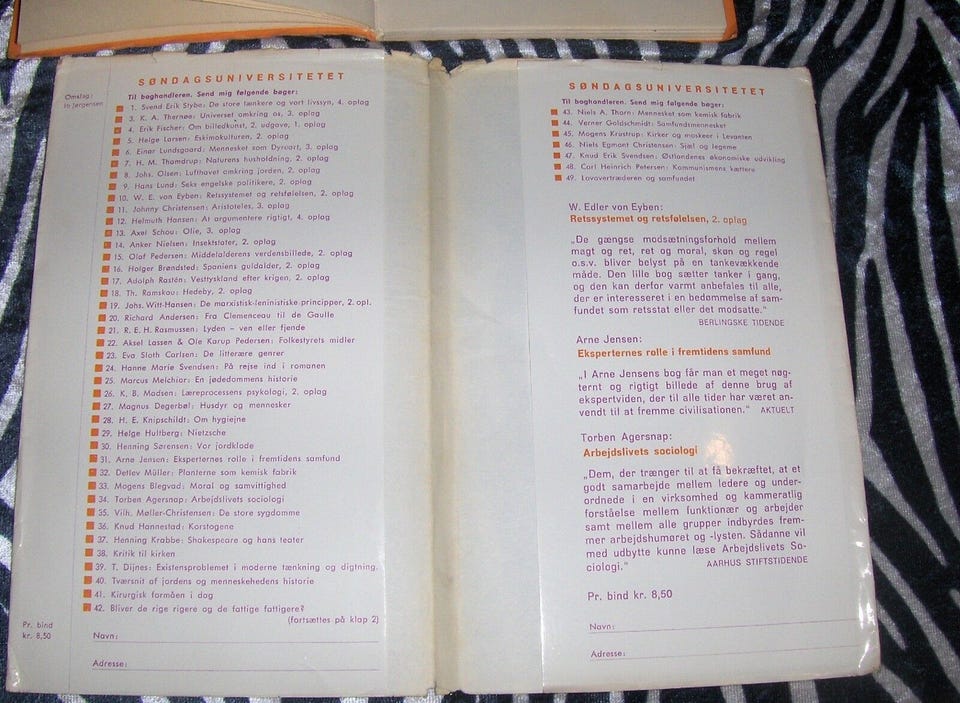 SØNDAGSUNIVERSITETET
Omslag:
Ib Jørgensen
Til boghandleren. Send mig følgende bøger:
1. Svend Erik Stybe: De store tænkere og vort livssyn, 4. oplag
3. K. A. Thernøe: Universet omkring os, 3. oplag
4. Erik Fischer: Om billedkunst, 2. udgave, 1. oplag
5. Helge Larsen: Eskimokulturen, 2. oplag
6. Einar Lundsgaard: Mennesket som Dyreart, 3. oplag
7. H. M. Thamdrup: Naturens husholdning, 2. oplag
8. Johs. Olsen: Lufthavet omkring jorden, 2. oplag
9. Hans Lund: Seks engelske politikere, 2. oplag
10. W. E. von Eyben: Retssystemet og retsfølelsen, 2. oplag
11. Johnny Christensen: Aristoteles, 3. oplag
12. Helmuth Hansen: At argumentere rigtigt, 4. oplag
13. Axel Schou: Olie, 3. oplag
14. Anker Nielsen: Insektstater, 2. oplag
15. Olaf Pedersen: Middelalderens verdensbillede, 2. oplag
16. Holger Brøndsted: Spaniens guldalder, 2. oplag
17. Adolph Rastén: Vesttyskland efter krigen, 2. oplag
18. Th. Ramskou: Hedeby, 2. oplag
19. Johs. Witt-Hansen: De marxistisk-leninistiske principper, 2. opl.
20. Richard Andersen: Fra Clemenceau til de Gaulle
21. R. E. H. Rasmussen: Lyden – ven eller fjende
22. Aksel Lassen & Ole Karup Pedersen: Folkestyrets midler
23. Eva Sloth Carlsen: De litterære genrer
24. Hanne Marie Svendsen: På rejse ind i romanen
25. Marcus Melchior: En jødedommens historie
26. K. B. Madsen: Læreprocessens psykologi, 2. oplag
27. Magnus Degerbøl: Husdyr og mennesker
28. H. E. Knipschildt: Om hygiejne
29. Helge Hultberg: Nietzsche
30. Henning Sørensen: Vor jordklode
31. Arne Jensen: Eksperternes rolle i fremtidens samfund
32. Detlev Müller: Planterne som kemisk fabrik
33. Mogens Blegvad: Moral og samvittighed
34. Torben Agersnap: Arbejdslivets sociologi
35. Vilh. Møller-Christensen: De store sygdomme
36. Knud Hannestad: Korstogene
37. Henning Krabbe: Shakespeare og hans teater
38. Kritik til kirken
39. T. Dijnes: Existensproblemet i moderne tænkning og digtning.
40. Tværsnit af jordens og menneskehedens historie
41. Kirurgisk formåen i dag
42. Bliver de rige rigere og de fattige fattigere?
(fortsættes på klap 2)
Pr. bind
kr. 8,50
Navn:
Adresse:
SØNDAGSUNIVERSITETET
Til boghandleren. Send mig følgende bøger:
43. Niels A. Thorn: Mennesket som kemisk fabrik
44. Verner Goldschmidt: Samfundsmennesket
45. Mogens Krustrup: Kirker og moskeer i Levanten
46. Niels Egmont Christensen: Sjæl og legeme
47. Knud Erik Svendsen: Østlandenes økonomiske udvikling
48. Carl Heinrich Petersen: Kommunismens kættere
49. Lovovertræderen og samfundet
W. Edler von Eyben:
Retssystemet og retsfølelsen, 2. oplag
„De gængse modsætningsforhold mellem
magt og ret, ret og moral, skøn og regel
o.s.v. bliver belyst på en tankevækkende
måde. Den lille bog sætter tanker i gang,
og den kan derfor varmt anbefales til alle,
der er interesseret i en bedømmelse af sam-
fundet som retsstat eller det modsatte.“
BERLINGSKE TIDENDE
Arne Jensen:
Eksperternes rolle i fremtidens samfund
„I Arne Jensens bog får man et meget nøg-
ternt og rigtigt billede af denne brug af
ekspertviden, der til alle tider har været an-
vendt til at fremme civilisationen.“ AKTUELT
Torben Agersnap:
Arbejdslivets sociologi
„Dem, der trænger til at få bekræftet, at et
godt samarbejde mellem ledere og under-
ordnede i en virksomhed og kammeratlig
forståelse mellem funktionær og arbejder
samt mellem alle grupper indbyrdes frem-
mer arbejdshumøret og -lysten. Sådanne vil
med udbytte kunne læse Arbejdslivets So-
ciologi.“ AARHUS STIFTSTIDENDE
Pr. bind kr. 8,50
Navn:
Adresse: